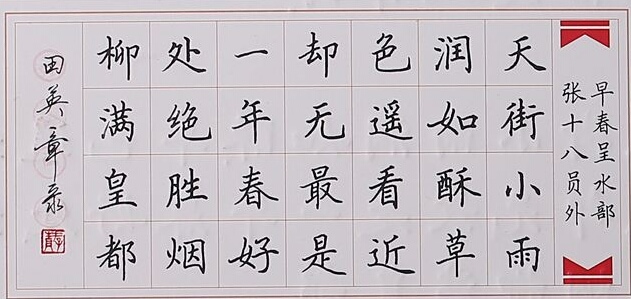 早春呈水部
张十八员外
天街小雨
润如酥草
色遥看近
却无最是
一年春好
处绝胜烟
柳满皇都
田英章录